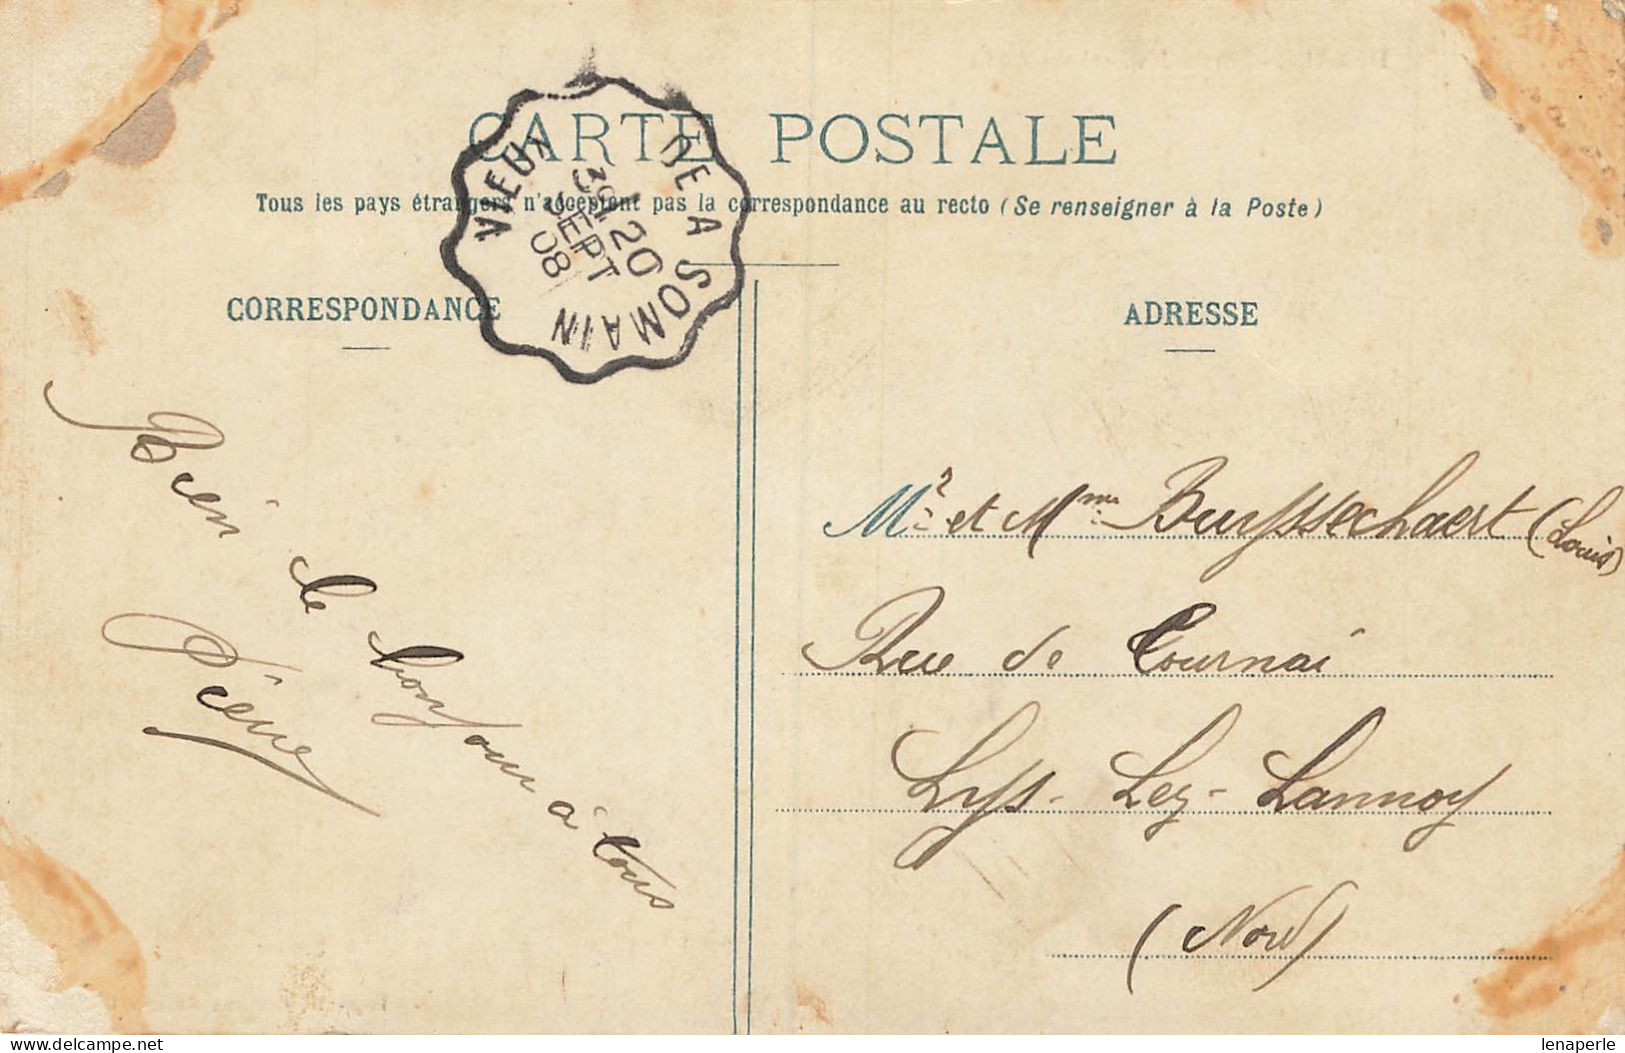 CARTE POSTALE
Tous les pays étrangers n'acceptent pas la correspondance au recto (Se renseigner à la Poste)
VIEUX A SOMAIN
20
SEPT
08
CORRESPONDANCE
ADRESSE
Bien
le
bonjour à tous
Pierre
Mr et Mme Buysschaert (Louis)
Rue de Tournai
Lys-Lez-Lannoy
(Nord)
delcampe.net
lenaperle